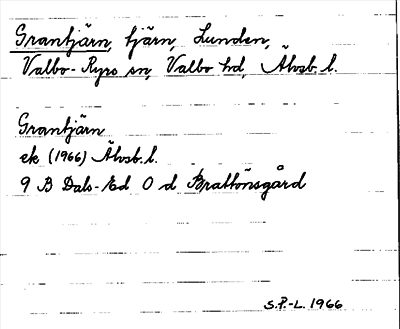 Grantjärn, tjärn, Lunden,
Valbo-Ryrs sn, Valbo hd, Älvsb. l.
Grantjärn
ek (1966) Älvsb. l.
9 B Dals-Ed 0 d Brattönsgård
S.P.-L. 1966